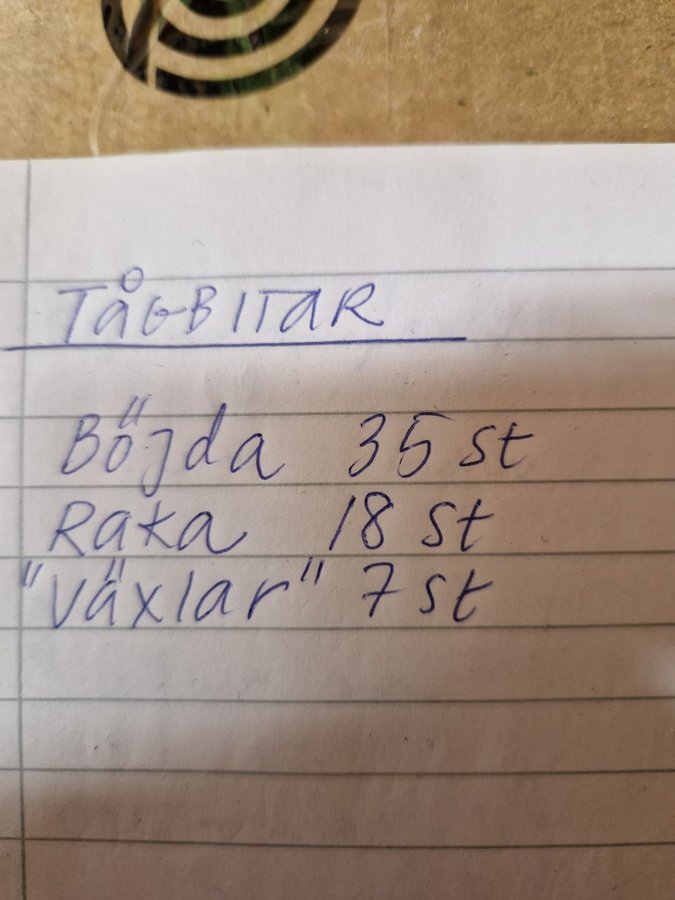 TÅGBITAR
Böjda 35 st
Raka 18 st
"Växlar" 7 st